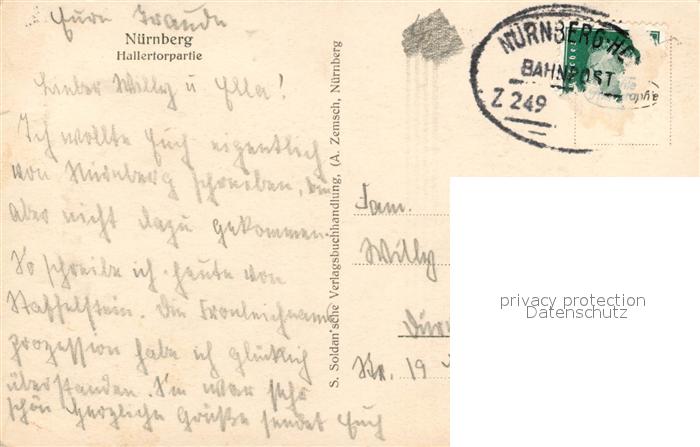 Eure Traude
Nürnberg
Hallertorpartie
Lieber Willy u Ella!
Ich wollte Euch eigentlich
von Nürnberg schreiben, bin
aber nicht dazu gekommen.
So schreibe ich heute von
Staffelstein. Die Fronleichnams
prozession habe ich glücklich
überstanden. S'm war sehr
schön Herzliche Grüße sendet Euch
S. Soldan'sche Verlagsbuchhandlung, (A. Zemsch, Nürnberg
NÜRNBERG-H
BAHNPOST
Z 249
Fam.
Willy
Dür
Nr. 19
privacy protection
Datenschutz